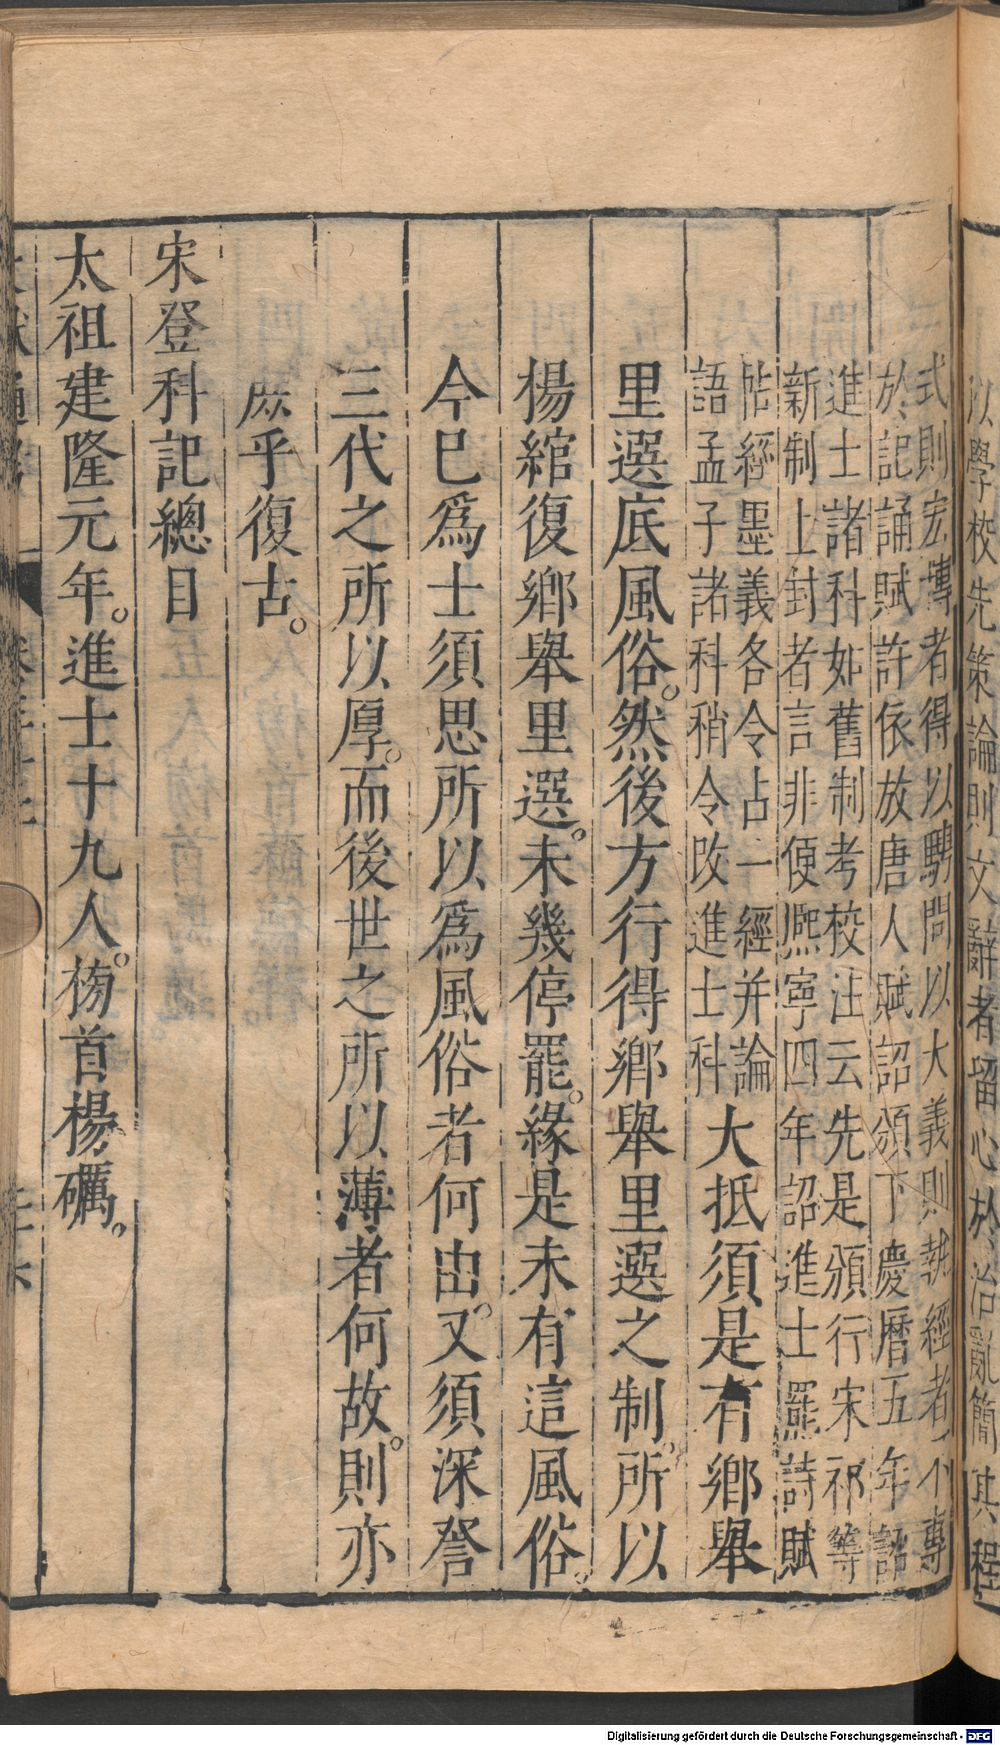 以學校先策論則文辭者留心於治亂簡其程
式則宏博者得以騁問以大義則執經者不專
於記誦賦許依放唐人賦詔頒下慶曆五年詔
進士諸科如舊制考校注云先是頒行宋祁等
新制上封者言非便熈寧四年詔進士罷詩賦
帖經墨義各令占一經并論
語孟子諸科稍令改進士科
大抵須是有鄉舉
里選底風俗。然後方行得鄉舉里選之制。所以
楊綰復鄉舉里選。未幾停罷。緣是未有這風俗。
今巳爲士須思所以爲風俗者何由。又須深詧
三代之所以厚。而後世之所以薄者何故。則亦
庶乎復古。
宋登科記總目
太祖建隆元年。進士十九人。榜首楊礪。
Digitalisierung gefördert durch die Deutsche Forschungsgemeinschaft - DFG